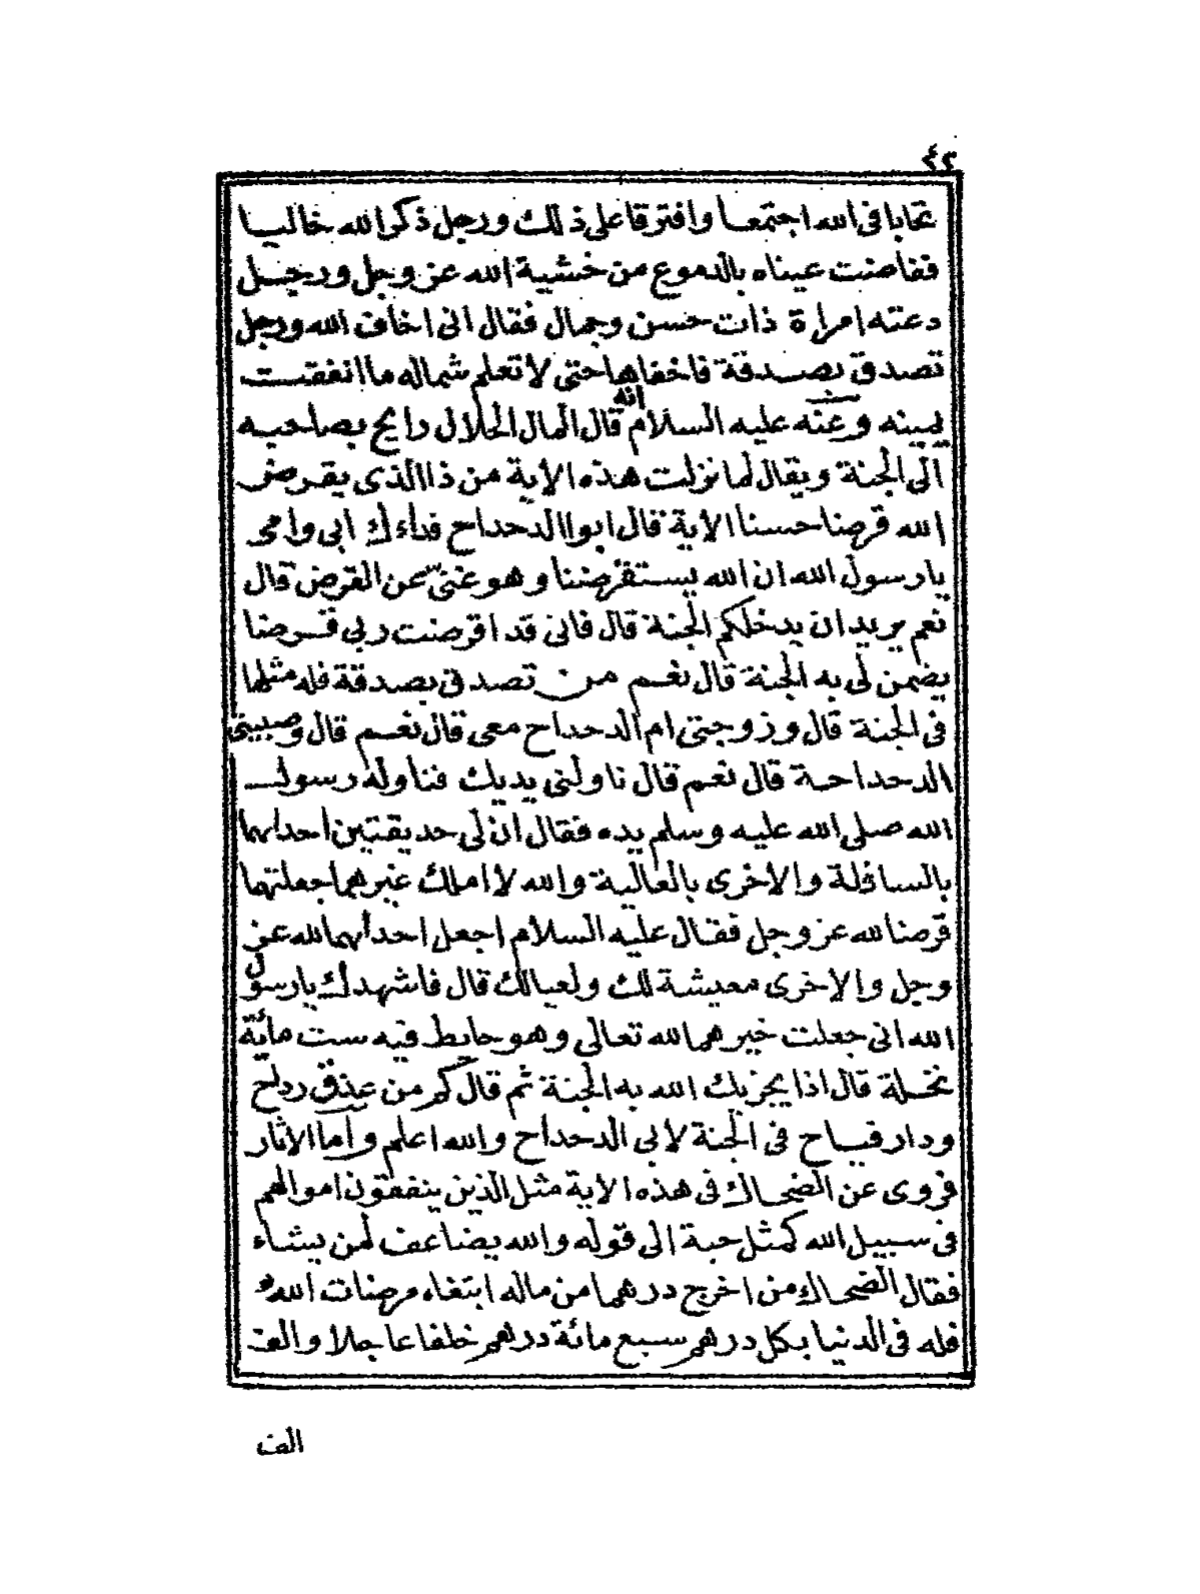 ٤٢
تحابا فى الله اجتمعا وافترقا على ذلك ورجل ذكر الله خاليا
ففاضت عيناه بالدموع من خشية الله عز وجل ورجل
دعته امراة ذات حسن وجمال فقال انى اخاف الله ورجل
تصدق بصدقة فاخفاها حتى لا تعلم شماله ما انفقت
يمينه وعنه عليه السلام انه قال المال الحلال رايح بصاحبه
الى الجنة ويقال لما نزلت هذه الاية من ذا الذى يقرض
الله قرضا حسنا الاية قال ابو الدحداح فداءك ابى وامى
يا رسول الله ان الله يستقرضنا وهو غنى عن القرض قال
نعم يريد ان يدخلكم الجنة قال فانى قد اقرضت ربى قرضا
يضمن لى به الجنة قال نعم من تصدق بصدقة فله مثلها
فى الجنة قال وزوجتى ام الدحداح معى قال نعم قال وصبيتى
الدحداحة قال نعم قال ناولنى يديك فناوله رسول
الله صلى الله عليه وسلم يده فقال ان لى حديقتين احداهما
بالسافلة والاخرى بالعالية والله لا املك غيرهما جعلتهما
قرضا لله عز وجل فقال عليه السلام اجعل احداهما لله عز
وجل والاخرى معيشة لك ولعيالك قال فاشهدك يا رسول
الله انى جعلت خيرهما لله تعالى وهو حايط فيه ست مائة
نخلة قال اذا يجزيك الله به الجنة ثم قال كم من عذق رداح
ودار فياح فى الجنة لابى الدحداح والله اعلم واما الاثار
فروى عن الضحاك فى هذه الاية مثل الذين ينفقون اموالهم
فى سبيل الله كمثل حبة الى قوله والله يضاعف لمن يشاء
فقال الضحاك من اخرج درهما من ماله ابتغاء مرضات الله
فله فى الدنيا بكل درهم سبع مائة درهم خلفا عاجلا والف
الف